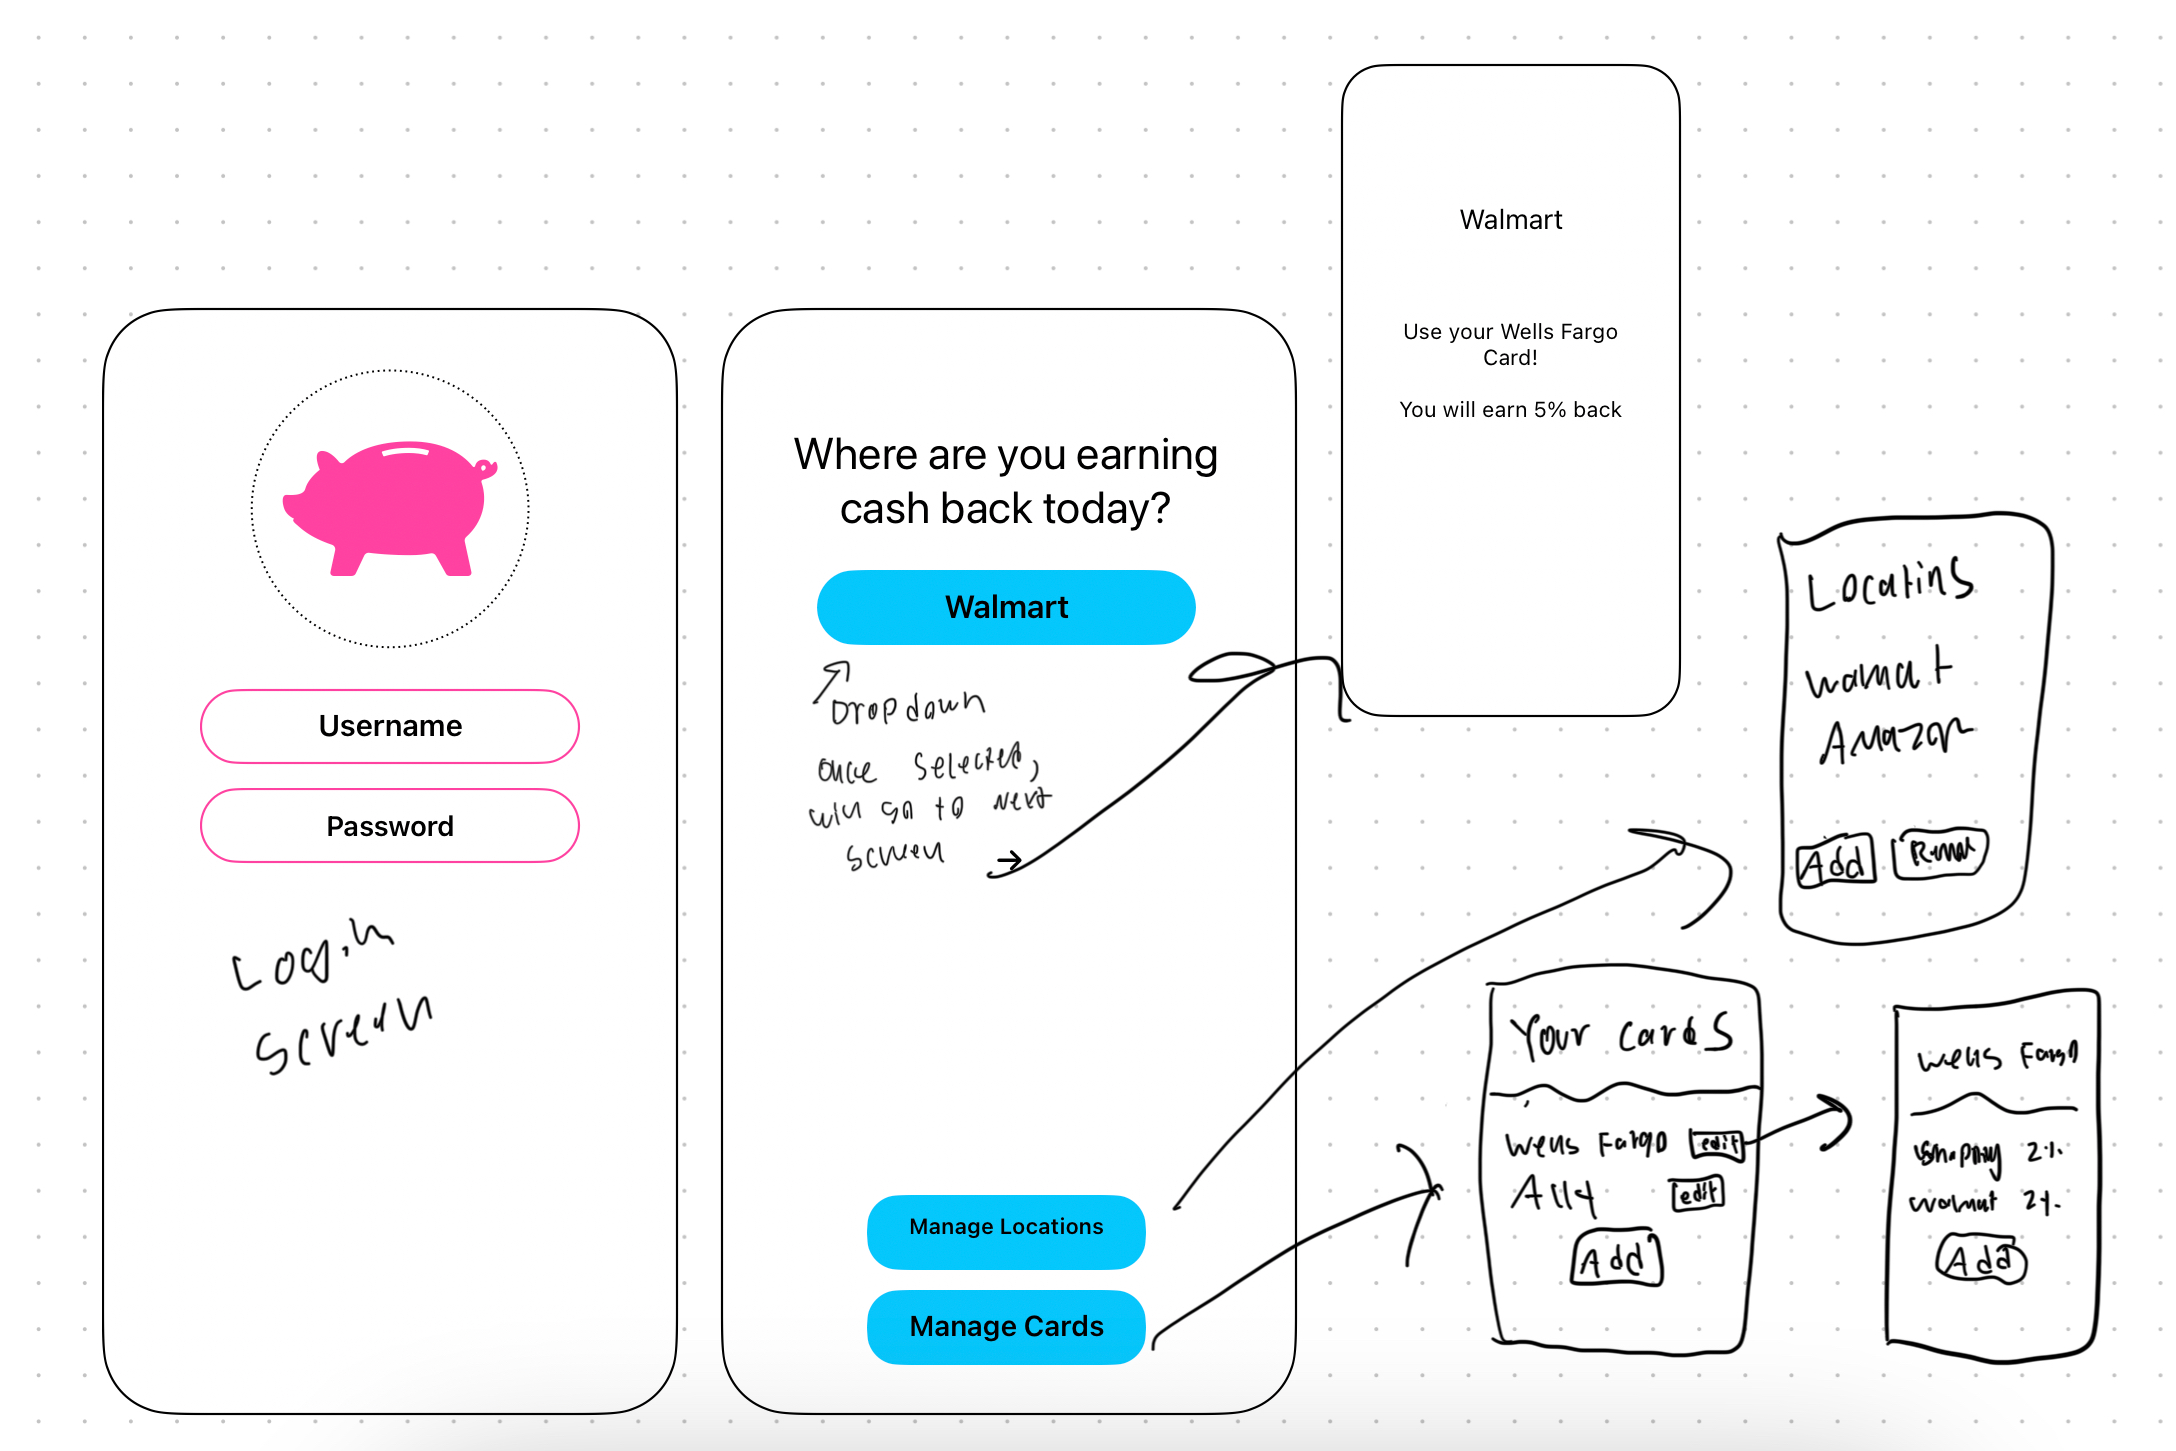 Username
Password
Login
Screen
Where are you earning
cash back today?
Walmart
Dropdown
once selected,
will go to next
screen →
Manage Locations
Manage Cards
Walmart
Use your Wells Fargo
Card!
You will earn 5% back
Locatins
Walmat
Amazon
Add
Your cards
Wells Fargo edit
Ally edit
Add
Wells Fargo
2%
Walmat 2%
Add